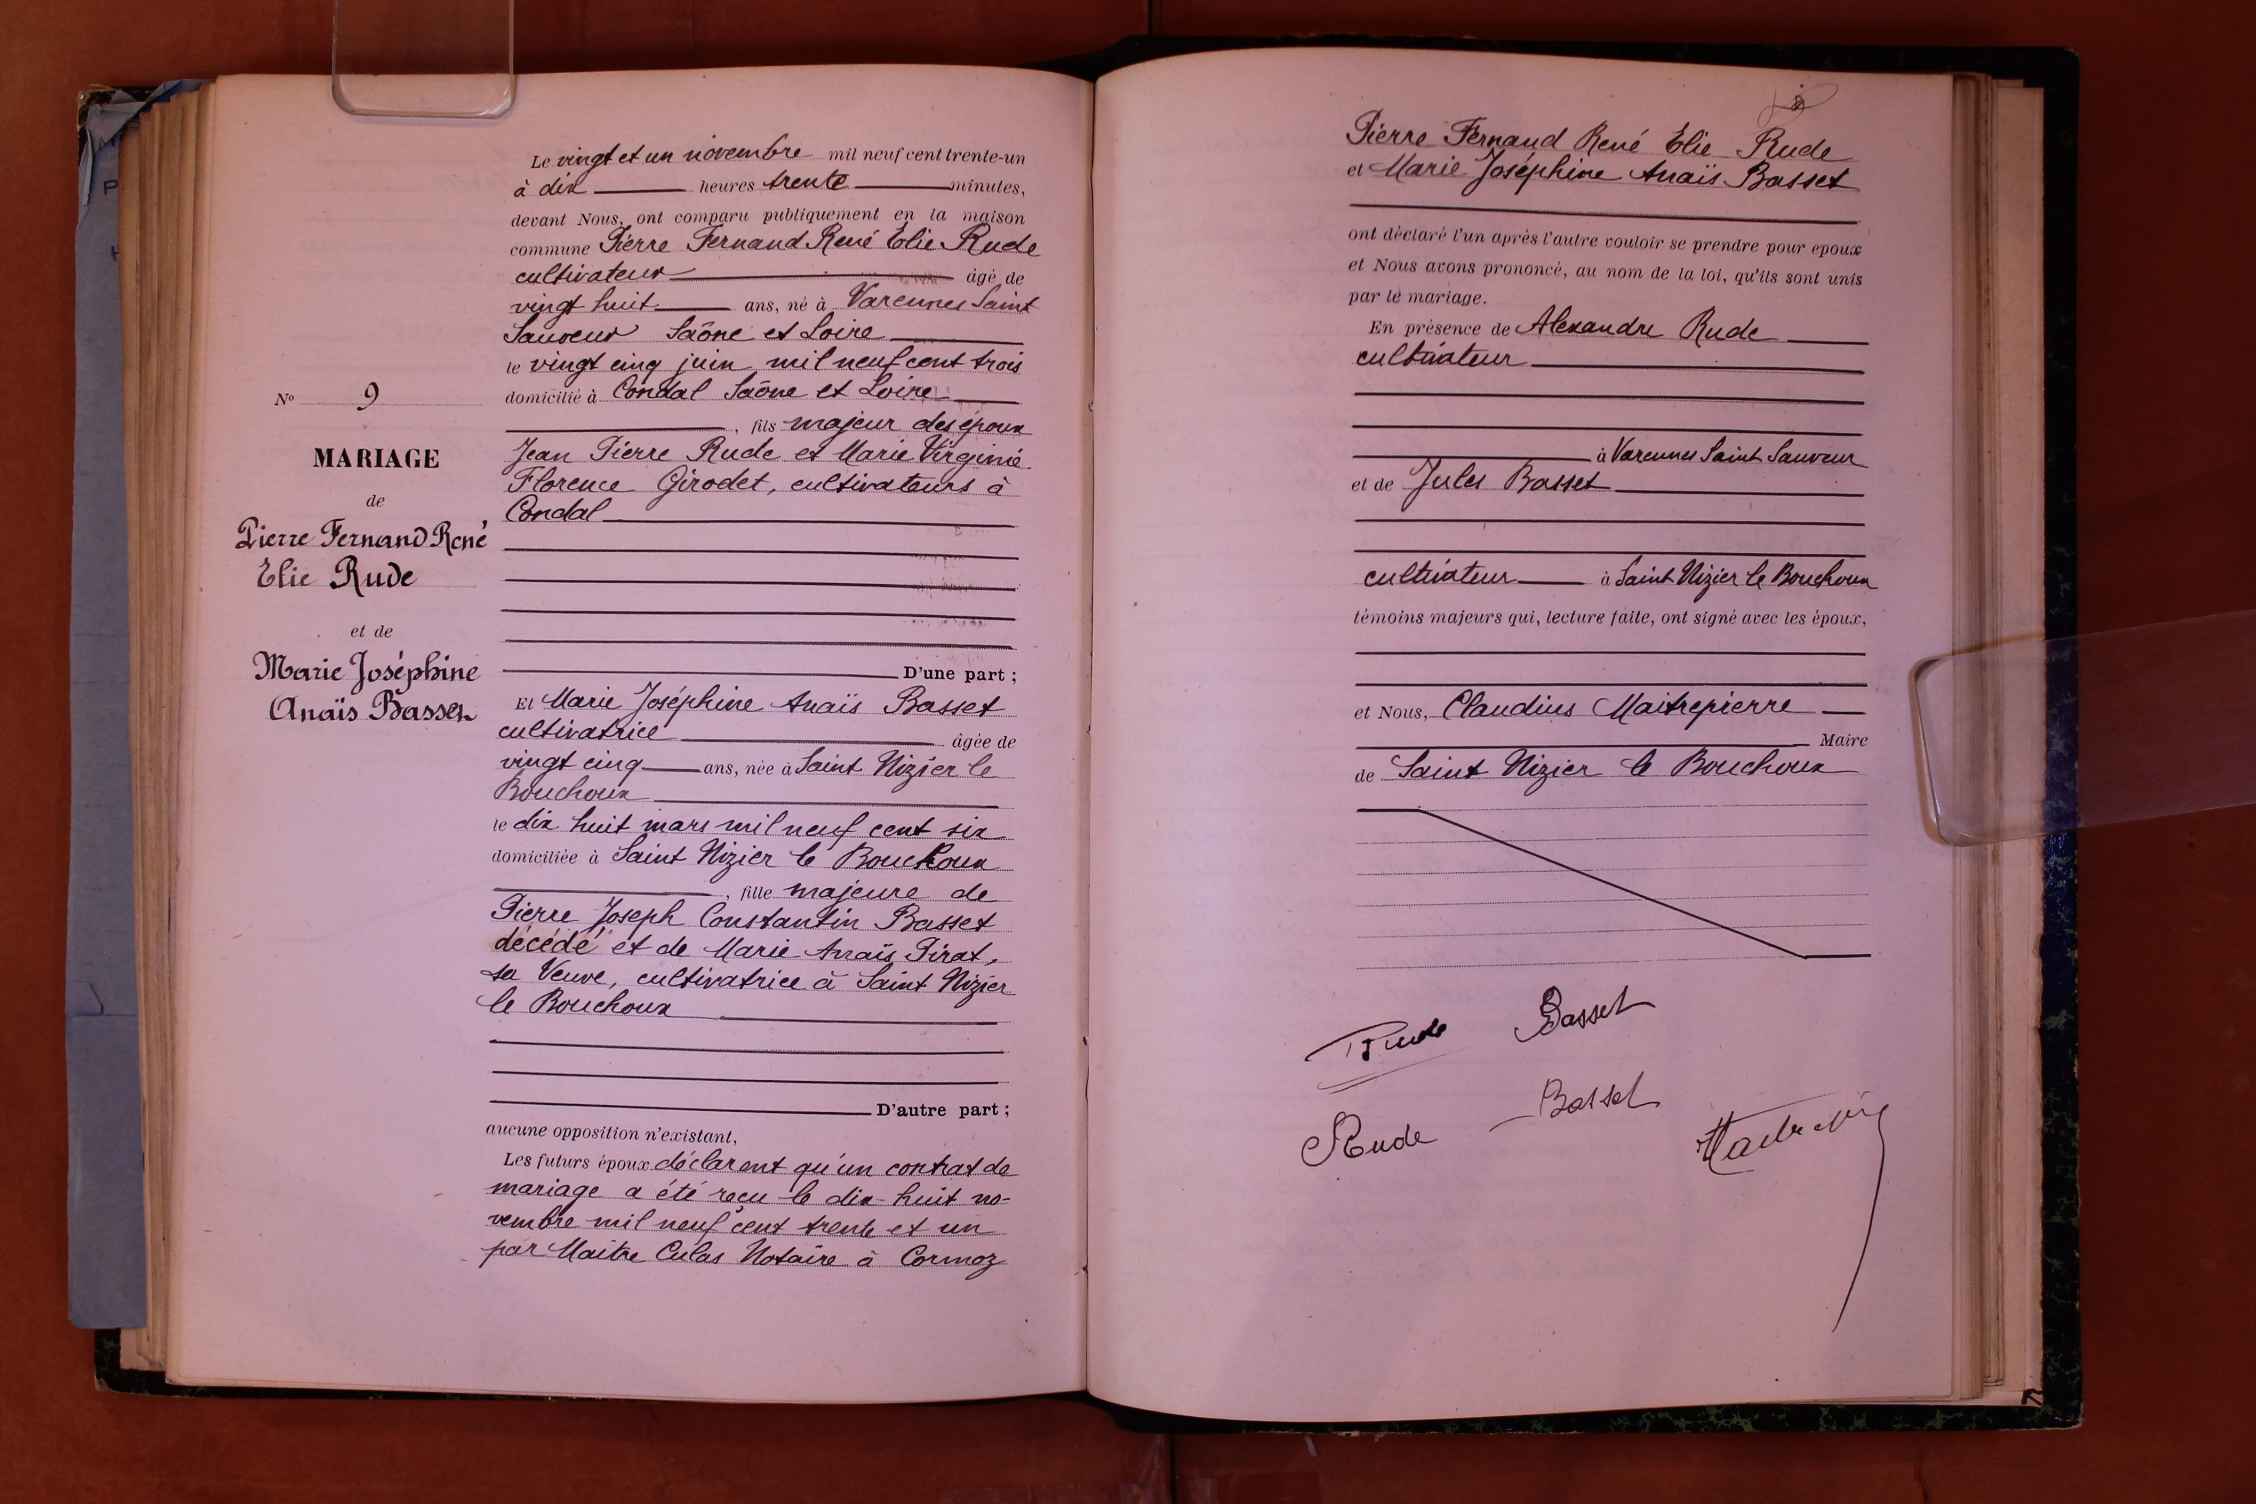 N° 9
MARIAGE
de
Pierre Fernand René
Élie Rude
et de
Marie Joséphine
Anaïs Basset
Le vingt et un novembre mil neuf cent trente-un
à dix heures trente minutes,
devant Nous, ont comparu publiquement en la maison
commune Pierre Fernand René Élie Rude
cultivateur âgé de
vingt huit ans, né à Varennes Saint
Sauveur Saône et Loire
le vingt cinq juin mil neuf cent trois
domicilié à Condal Saône et Loire
, fils majeur des époux
Jean Pierre Rude et Marie Virginie
Florence Girodet, cultivateurs à
Condal
D'une part ;
Et Marie Joséphine Anaïs Basset
cultivatrice âgée de
vingt cinq ans, née à Saint Nizier le
Bouchoux
le dix huit mars mil neuf cent six
domiciliée à Saint Nizier le Bouchoux
, fille majeure de
Pierre Joseph Constantin Basset
décédé et de Marie Anaïs Pirat,
sa Veuve, cultivatrice à Saint Nizier
le Bouchoux
D'autre part ;
aucune opposition n'existant,
Les futurs époux déclarent qu'un contrat de
mariage a été reçu le dix-huit no-
vembre mil neuf cent trente et un
par Maître Culas Notaire à Cormoz
Pierre Fernand René Élie Rude
et Marie Joséphine Anaïs Basset
ont déclaré l'un après l'autre vouloir se prendre pour époux
et Nous avons prononcé, au nom de la loi, qu'ils sont unis
par le mariage.
En présence de Alexandre Rude
cultivateur
à Varennes Saint Sauveur
et de Jules Basset
cultivateur à Saint Nizier le Bouchoux
témoins majeurs qui, lecture faite, ont signé avec les époux,
et Nous, Claudius Maitrepierre
Maire
de Saint Nizier le Bouchoux
Rude Basset
Rude Basset